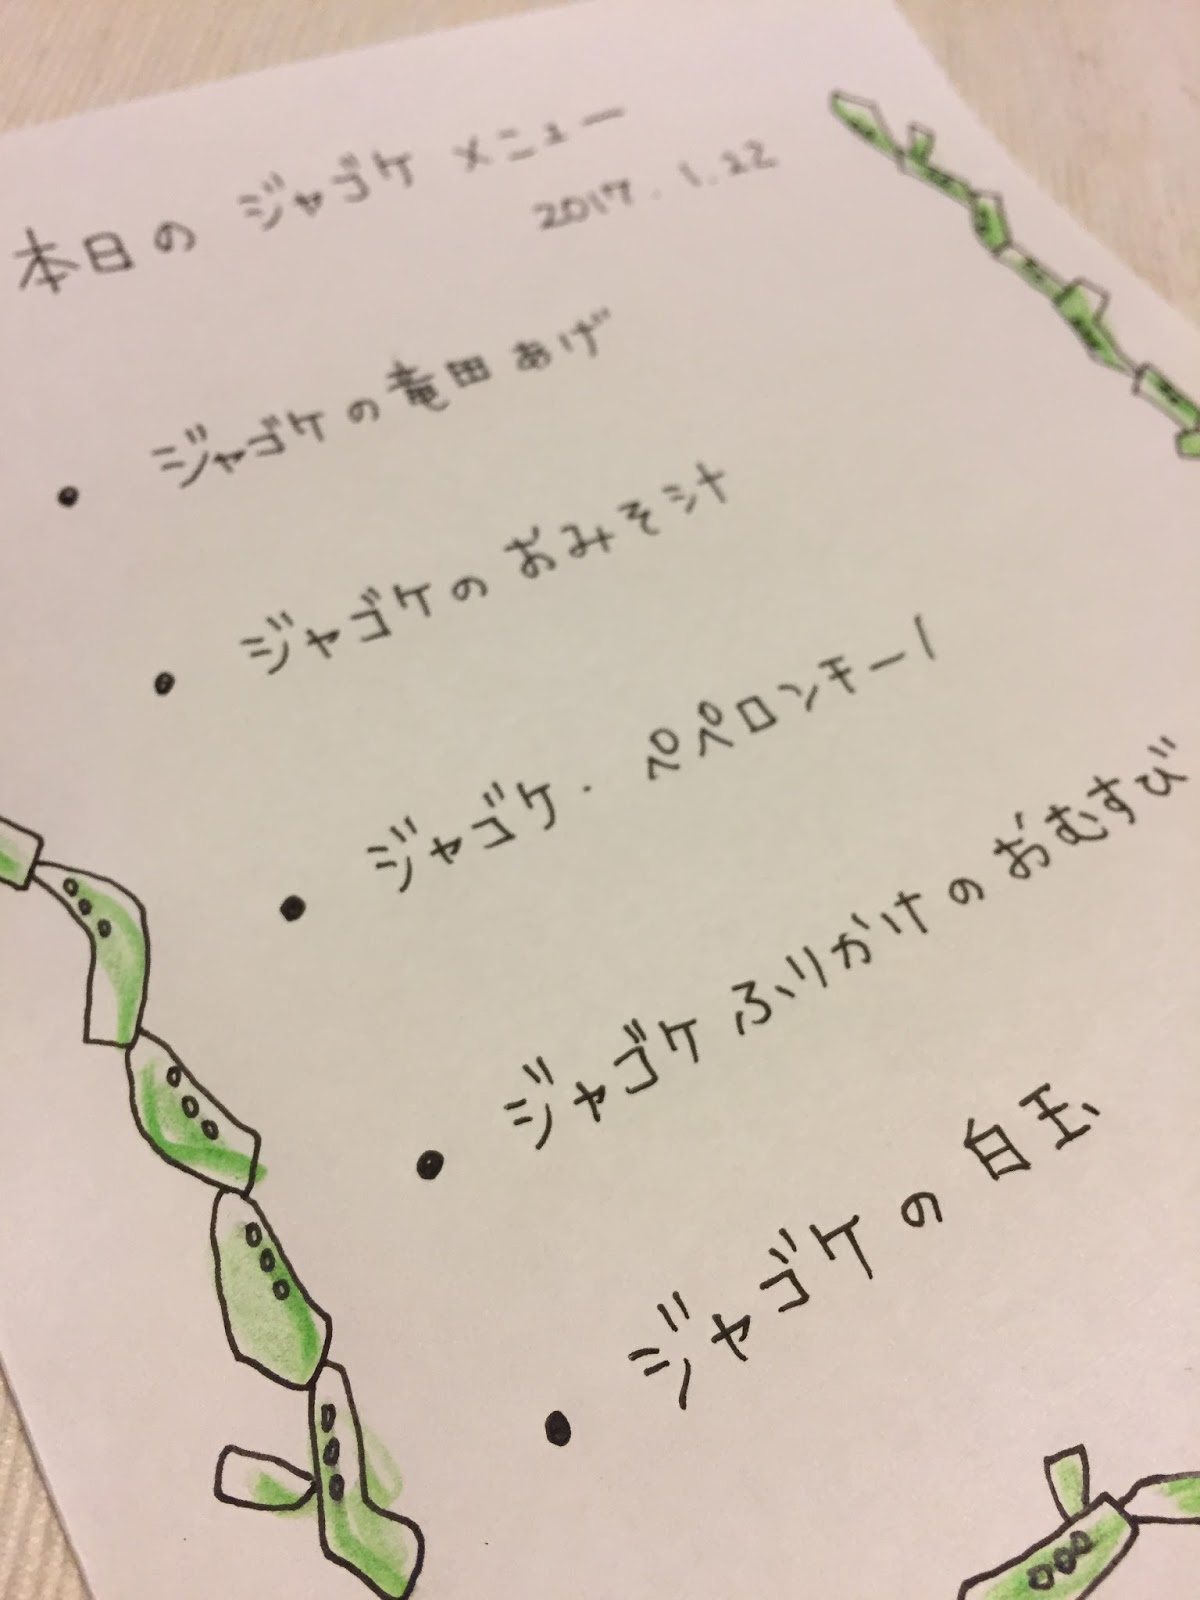 本日の ジャゴケ メニュー
2017.1.22
• ジャゴケの竜田あげ
• ジャゴケの おみそ汁
• ジャゴケ・ペペロンチーノ
• ジャゴケ ふりかけの おむすび
• ジャゴケの 白玉